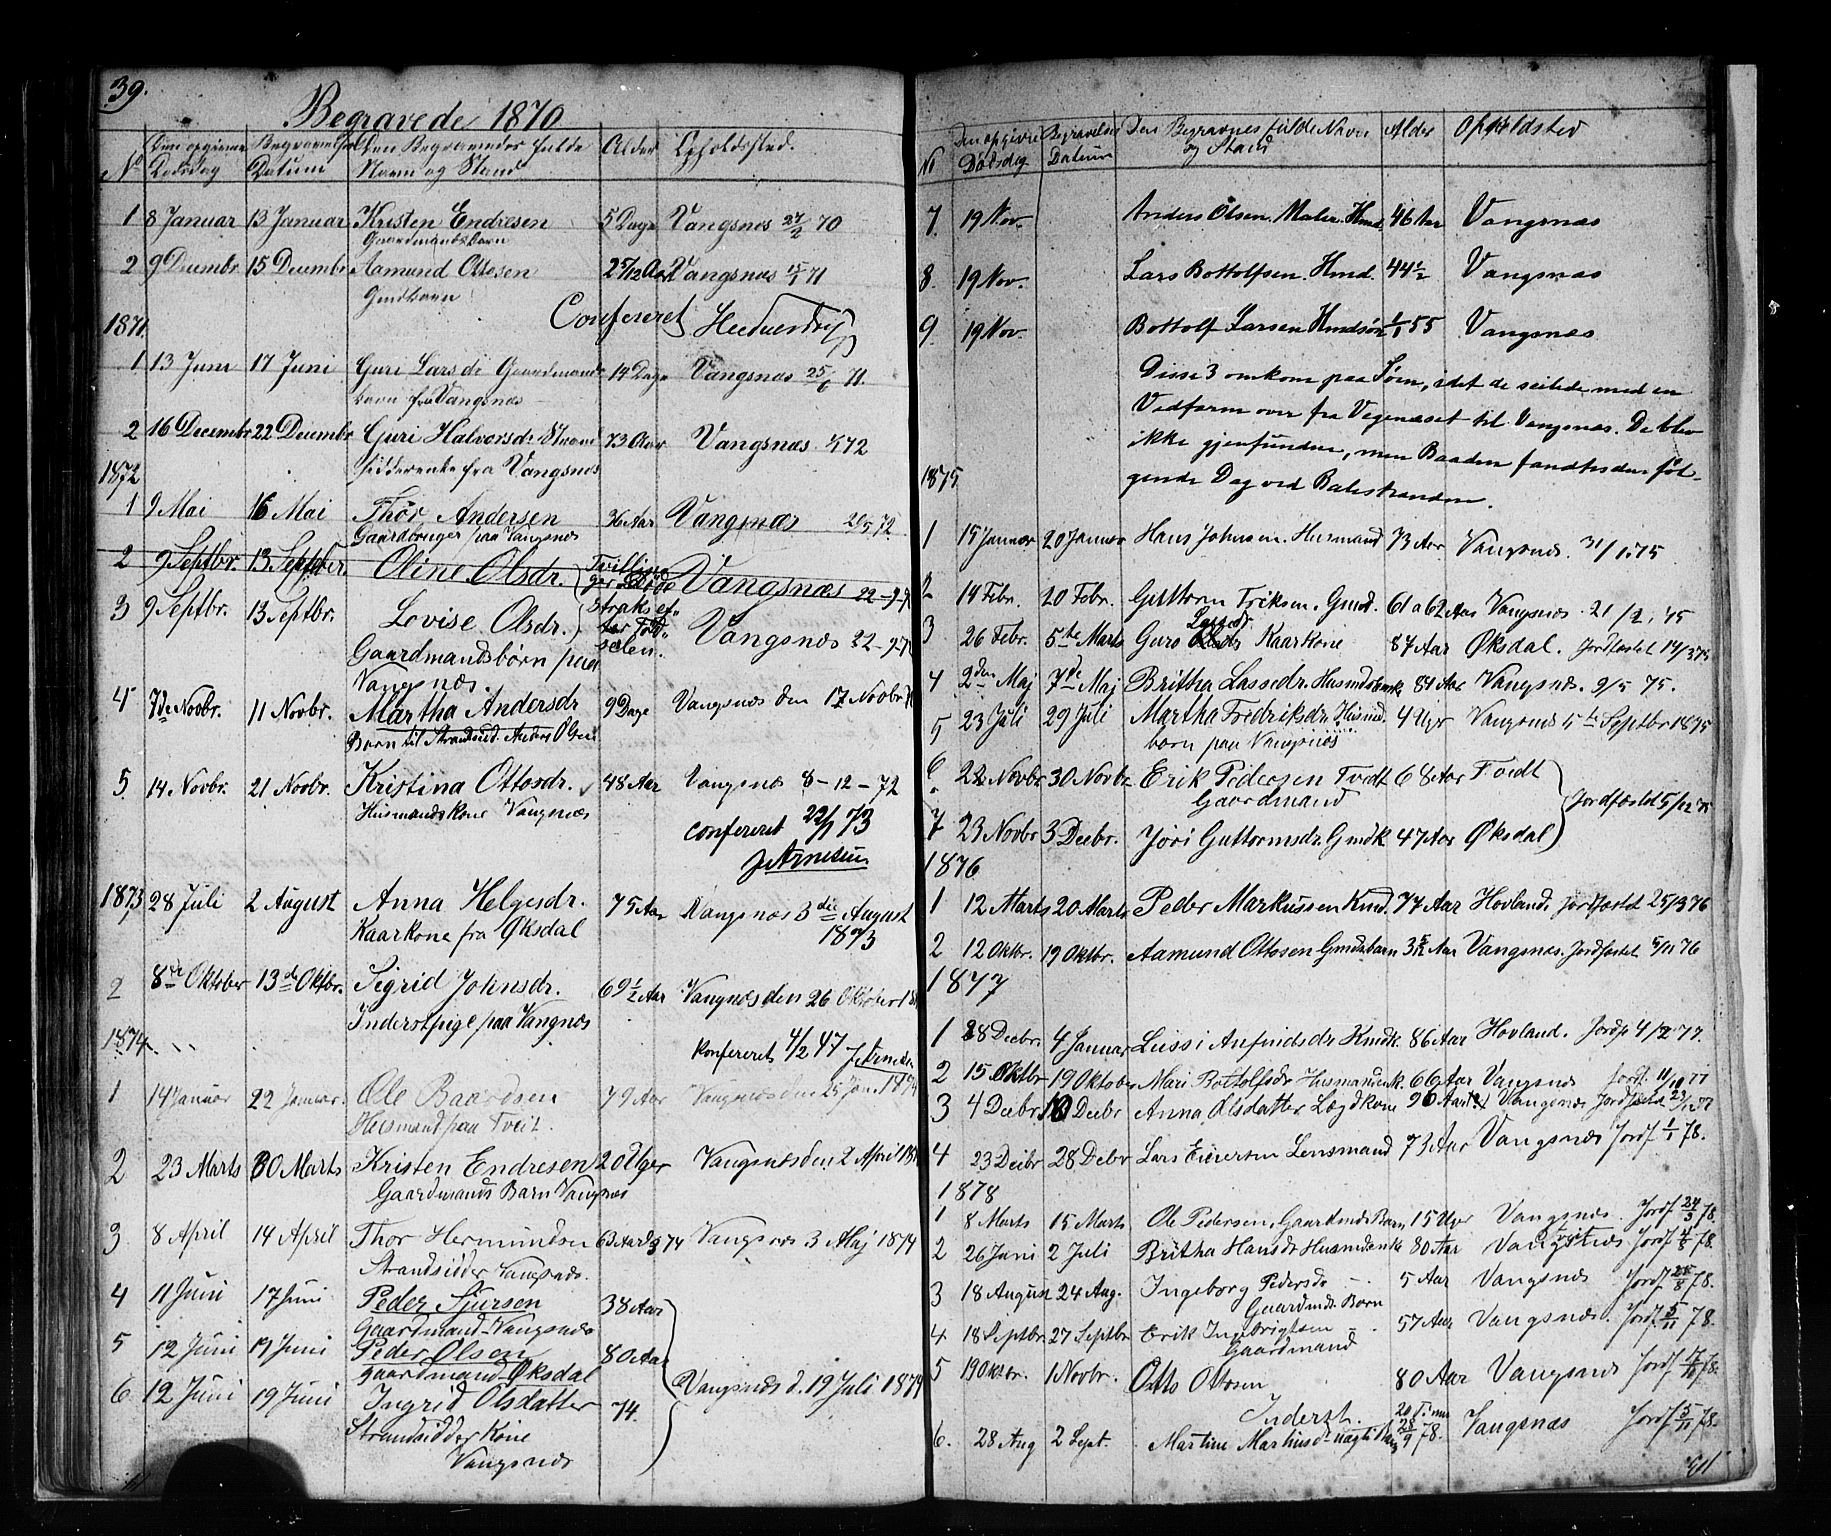 39.
Begravede 1870
No Den opgivne Dødsdag Begravelses Datum Den Begravedes fulde Navn og Stand Alder Opholdssted.
1 8 Januar 13 Januar Kristen Endresen 5 Dage Vangsnæs 27/2 70
Gaardmandsbarn
2 9 Decembr. 15 Decembr Aamund Ottesen 2 5/12 Aar Vangsnæs 71
Gmdbarn
Confereret
1871.
1 13 Juni 17 Juni Guri Larsdr Gaardmands 14 Dage Vangsnæs 25/6 71.
barn fra Vangsnæs
2 16 Decembr 22 Decembr Guri Halvorsdr. Strand 73 Aar Vangsnæs 72
sidderenke fra Vangsnæs
1872
1 9 Mai 16 Mai Thor Andersen 36 Aar Vangsnæs 72
Gaardbruger paa Vangsnæs
2 9 Septbr. 13 Septber. Oline Olsdr. Tvillinger Døde Vangsnæs 22-9-7
3 9 Septbr. 13 Septbr. Lovise Olsdr. straks efter Fødselen. Vangsnæs 22-9-7
Gaardmandsbørn paa
Vangsnæs.
4 7de Novbr. 11 Novbr. Martha Andersdr 9 Dage Vangsnæs den 17 Novbr 7
Barn til Strandsid. Anders Olsen
5 14 Novbr. 21 Novbr. Kristina Ottosdr. 48 Aar Vangsnæs 8-12-72
Husmandskone Vangsnæs
Confereret 22/1 73
J Arnesen
1873
1 28 Juli 2 August Anna Helgesdr. 75 Aar Vangsnæs 3die August
Kaarkone fra Øksdal 1873
2 8de Oktober 13de Oktbr. Sigrid Johnsdr. 69 1/2 Aar Vangsnæs den 26 Oktober 18
Inderstpige paa Vangnæs
1874.
Konfereret 4/2 47 J Arnesen
1 14 Januar 22 Januar. Ole Baardsen 79 Aar Vangsnæs den 25 Jan. 1874
Husmand paa Tveit.
2 23 Marts 30 Marts Kristen Endresen 20 Uger Vangsnæs den 2 April 18
Gaardmands Barn Vangsnæs
3 8 April 14 April Thor Hermundsen 63 Aar Vangsnæs 3 Maj 1874
Strandsidder Vangsnæs.
4 11 Juni 17 Juni Peder Sjursen 38 Aar
Gaardmand Vangsnæs
5 12 Juni 19 Juni Peder Olsen 80 Aar
gaardmand Øksdal
6 12 Juni 19 Juni Ingrid Olsdatter 74. Vangsnæs d. 19 Juli 1874
Strandsidder Kone
Vangsnæs
No Den opgivne Dødsdag Begravelses Datum Den Begravnes fulde Navn og Stand Alder Opholdsted
7. 19 Nov. Anders Olsen. Maler. Hmd 46 Aar Vangsnæs
8. 19 Nov. Lars Bottolfsen. Hmd. 44 1/2 Vangsnæs
9. 19 Nov. Bottolf Larsen Hmdsøn 55 Vangsnæs
Disse 3 omkom paa Søen, idet de seilede med en
Vedfarm over fra Vegenæset til Vangsnæs. De blev
ikke gjenfundne, men Baaden fandtes den føl-
gende Dag ved Balestranden.
1875
1 15 Januar 20 Januar Hans Johnsen. Husmand 73 Aar Vangsnæs. 31/1. 75
2 14 Febr. 20 Febr. Guttorm Eriksen. Gmd. 61 a 62 Aar Vangsnæs. 21/2. 75
3 26 Febr. 5te Marts Guro Kaarkone 87 Aar Øksdal. Jordfæstet 14/3 75
4 2den Maj 7de Maj Britha Lassedr. Husmdsenk. 84 Aar Vangsnæs. 9/5 75.
5 23 Juli 29 Juli Martha Fredriksdr. Husmd. 4 Uger Vangsnæs 5te Septbr 1875
barn paa Vangsnæs
6. 22 Novbr 30 Novbr. Erik Pedersen Tvedt 68 Aar Tvedt
Gaardmand Jordfæstet 5/12 75
7 23 Novbr 3 Decbr. Jori Guttormsdr. Gmdk. 47 Aar Øksdal
1876
1 12 Marts 20 Marts Peder Markussen Kmd. 74 Aar Hovland. Jordfæstet 25/3 76
2 12 Oktbr. 19 Oktbr. Aamund Ottosen Gmdsbarn 3 Aar Vangsnæs. Jordfæstet 5/11 76
1877
1 28 Decbr. 4 Januar Lussi Anfindsdr Kmdk. 86 Aar Hovland. Jordf 4/2 77.
2 15 Oktbr 19 Oktober Mari Bottolfsdr Husmandenk. 66 Aar Vangsnæs Jordf. 11/11 77
3 4 Decbr 10 Decbr Anna Olsdatter Lægdkone 96 Aar Vangsnæs Jordfæstet 23/12 77
4 23 Decbr 28 Decbr Lars Lensmand 73 Aar Vangsnæs Jordf 1/1 78.
1878
1 8 Marts 15 Marts Ole Pedersen, Gaardmds Barn 15 Uger Vangsnæs. Jordf 24/3 78.
2 26 Juni 2 Juli Britha Hansdr Husmdenk 80 Aar Vangsnæs Jordf 78.
3 18 August 24 Aug. Ingeborg Pedersdr 5 Aar Vangsnæs Jordf 25/8 78.
Gaardmds Barn
4 18 Septbr 27 Septbr Erik Ingebrigtsen 57 Aar Vangsnæs. Jordf. 5/11 78.
Gaardmand
5 19 Oktbr. 1 Novbr. Otto Ottosen 80 Aar Vangsnæs Jordf 78.
Inderst.
6. 28 Aug 2 Sept. Martine 20 Timer 28/9 78. Vangsnæs Jordf 5/11 78.